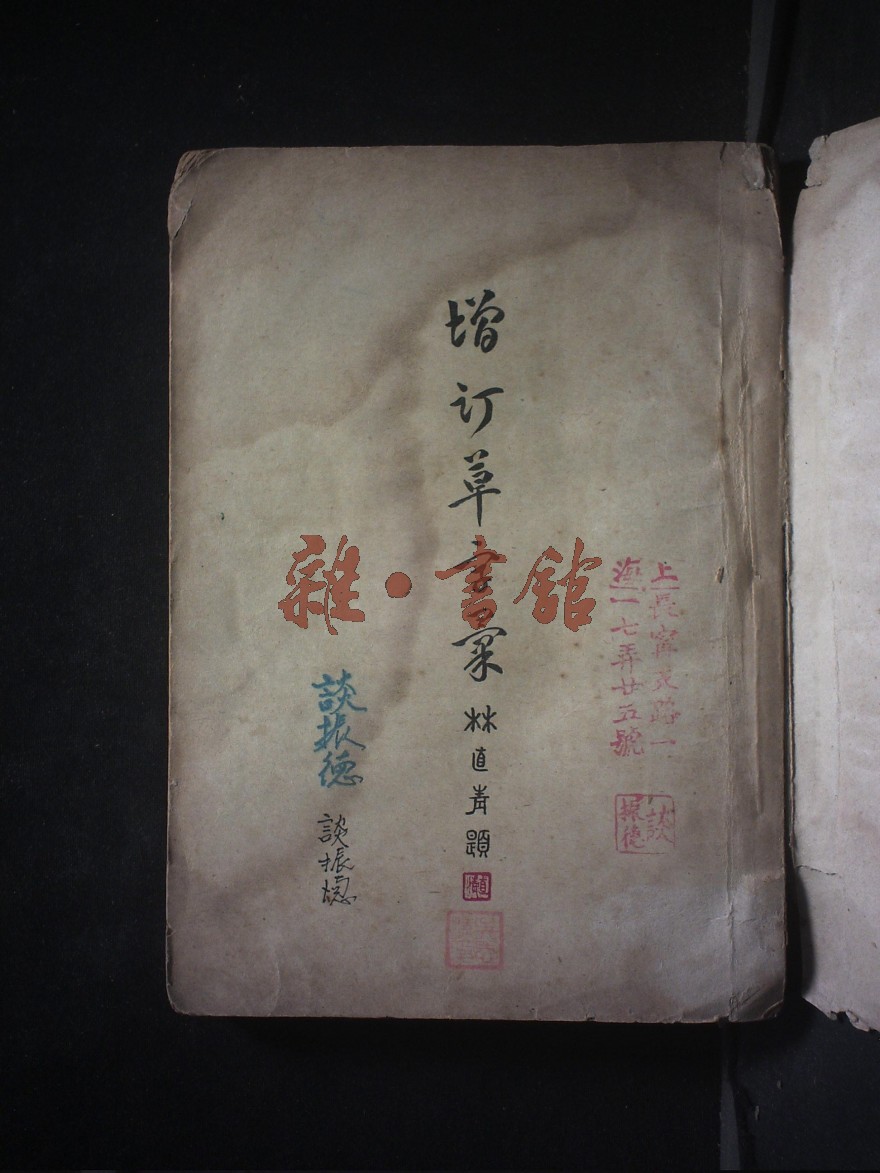 上海
長寧支路一
一七弄廿五號
談振德
增訂草字彙
林直青題
談振德
談振德
雜·書館